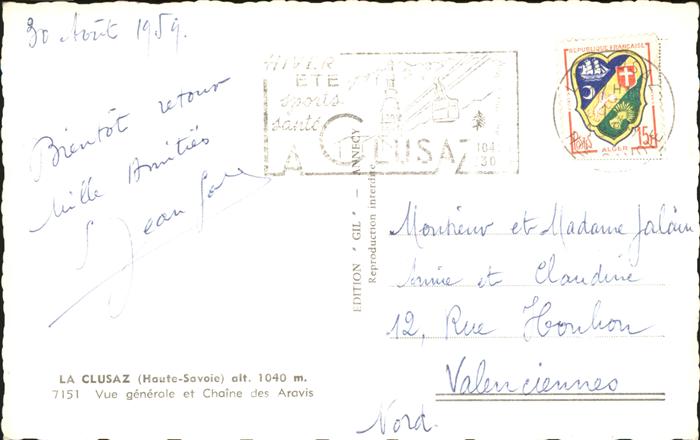 30 Août 1959.
Bientôt retour
Mille Amitiés
Jean
HIVER
ETE
sports
santé
LA CLUSAZ
1040
30
REPUBLIQUE FRANÇAISE
Postes 15F
ALGER
EDITION "GIL" - ANNECY
Reproduction interdite
Monsieur et Madame
Annie et Claudine
12, Rue
Valenciennes
Nord.
LA CLUSAZ (Haute-Savoie) alt. 1040 m.
7151 Vue générale et Chaîne des Aravis